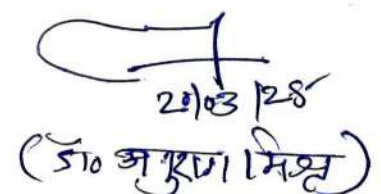 20/03/25
(डॉ० अनुराग मिश्र)